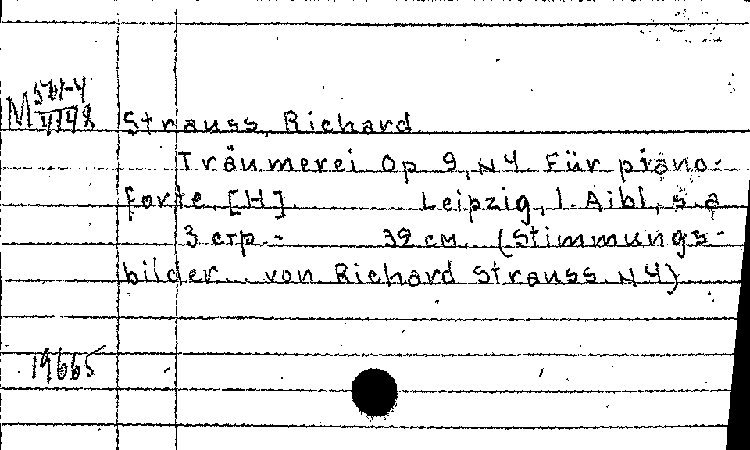 M 561-4
4148
Strauss, Richard
Träumerei Op 9, N4. Für piano-
forte. [H] Leipzig, J. Aibl, s. a
3 стр. - 32 см. (Stimmungs-
bilder... von Richard Strauss N4)
19665